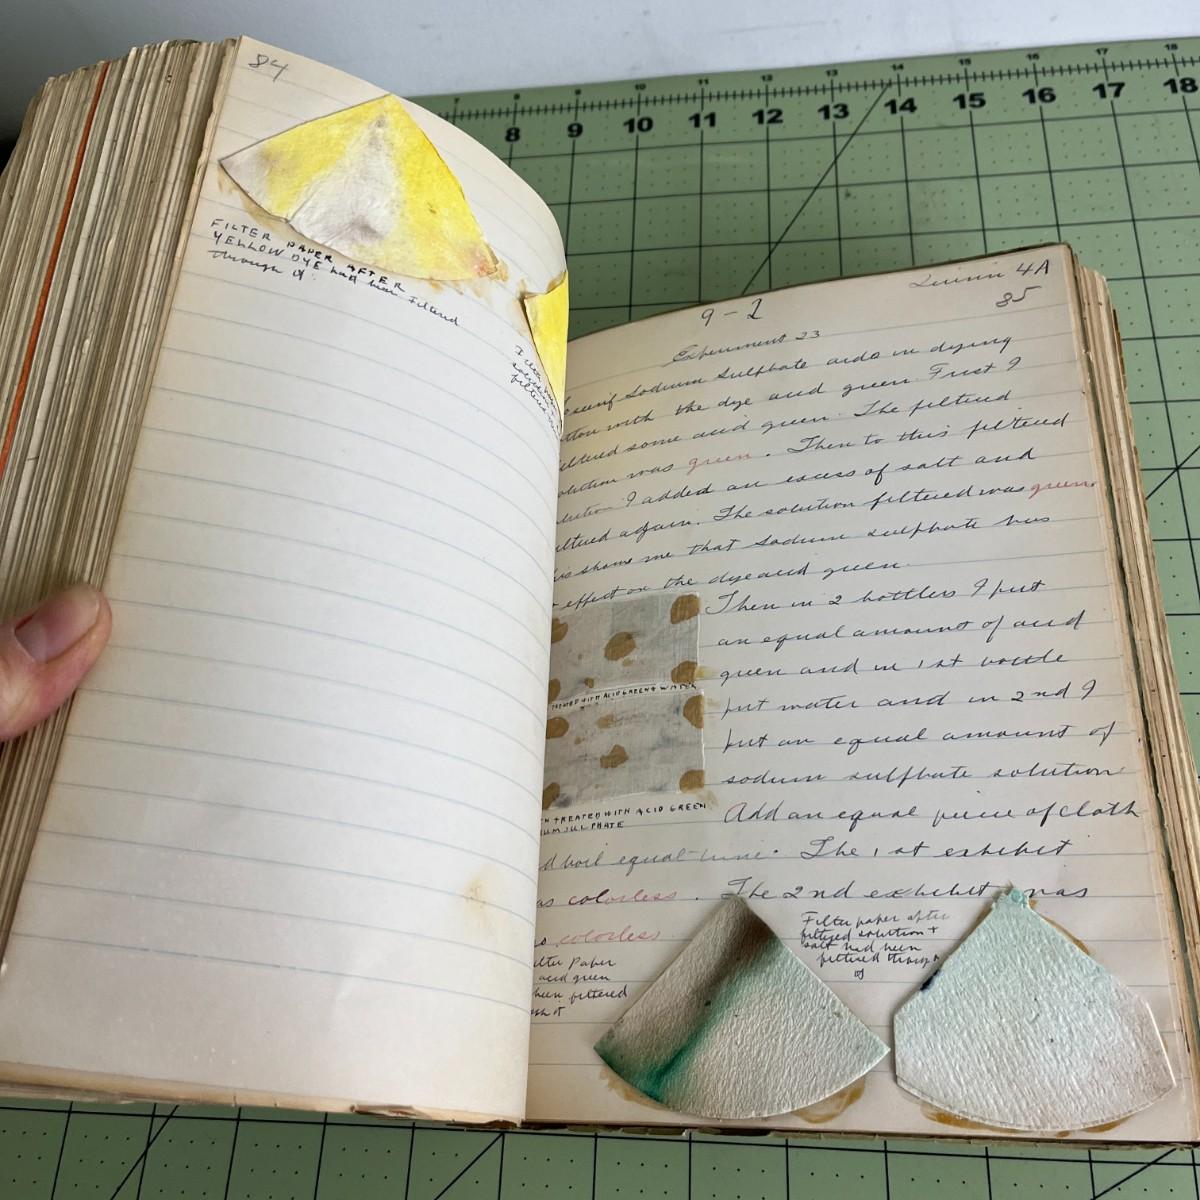 84
FILTER PAPER AFTER
YELLOW DYE had been filtered
through it.
9-2
Quinn 4A
85
Experiment 23
Sodium Sulphate aids in dying
with the dye acid green. First I
some acid green. The filtered
was green. Then to this filtered
I added an excess of salt and
again. The solution filtered was green
shows me that sodium sulphate has
effect on the dye acid green.
Then in 2 bottles I put
an equal amount of acid
green and in 1st bottle
put water and in 2nd I
put an equal amount of
sodium sulphate solution
Add an equal piece of cloth
boil equal time. The 1st exhibit
colorless. The 2nd exhibit was
colorless.
TREATED WITH ACID GREEN & WATER
TREATED WITH ACID GREEN
SULPHATE
paper
acid green
been filtered
it
Filter paper after
filtered solution +
salt had been
filtered through
it
7 8 9 10 11 12 13 14 15 16 17 18
8 9 10 11 12 13 14 15 16 17 18